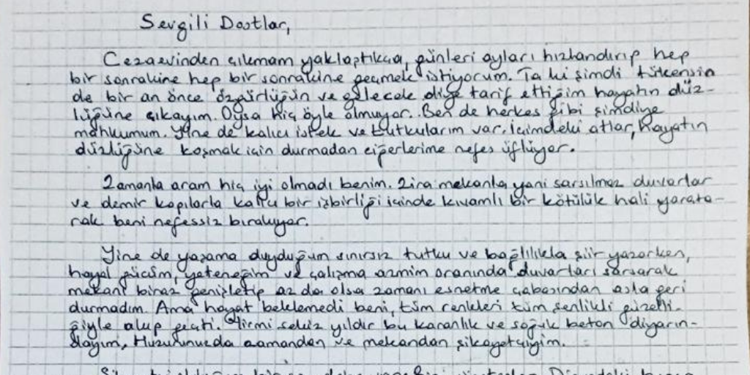 Sevgili Dostlar,
Cezaevinden çıkmam yaklaştıkça, günleri ayları hızlandırıp hep
bir sonrakine hep bir sonrakine geçmek istiyorum. Ta ki şimdi tükensin
de bir an önce özgürlüğün ve gelecek diye tarif ettiğim hayatın düz-
lüğüne çıkayım. Oysa hiç öyle olmuyor. Ben de herkes gibi şimdiye
mahkumum. Yine de kalıcı istek ve tutkularım var. İçimdeki atlar, hayatın
düzlüğüne koşmak için durmadan ciğerlerime nefes üflüyor.
Zamanla aram hiç iyi olmadı benim. Zira mekanla yani sarsılmaz duvarlar
ve demir kapılarla kalıcı bir işbirliği içinde kıvamlı bir kötülük hali yarata-
rak beni nefessiz bırakıyor.
Yine de yaşama duyduğum sınırsız tutku ve bağlılıkla şiir yazarken,
hayal gücüm, yeteneğim ve çalışma azmim oranında duvarları sarsarak
mekanı biraz genişletip az da olsa zamanı esnetme çabasından asla geri
durmadım. Ama hayat beklemedi beni, tüm renkleri tüm şenlikli güzelli-
ğiyle alıp geçti. Yirmi sekiz yıldır bu karanlık ve soğuk beton diyarın-
dayım, Huzurunuzda zamandan ve mekandan şikayetçiyim.